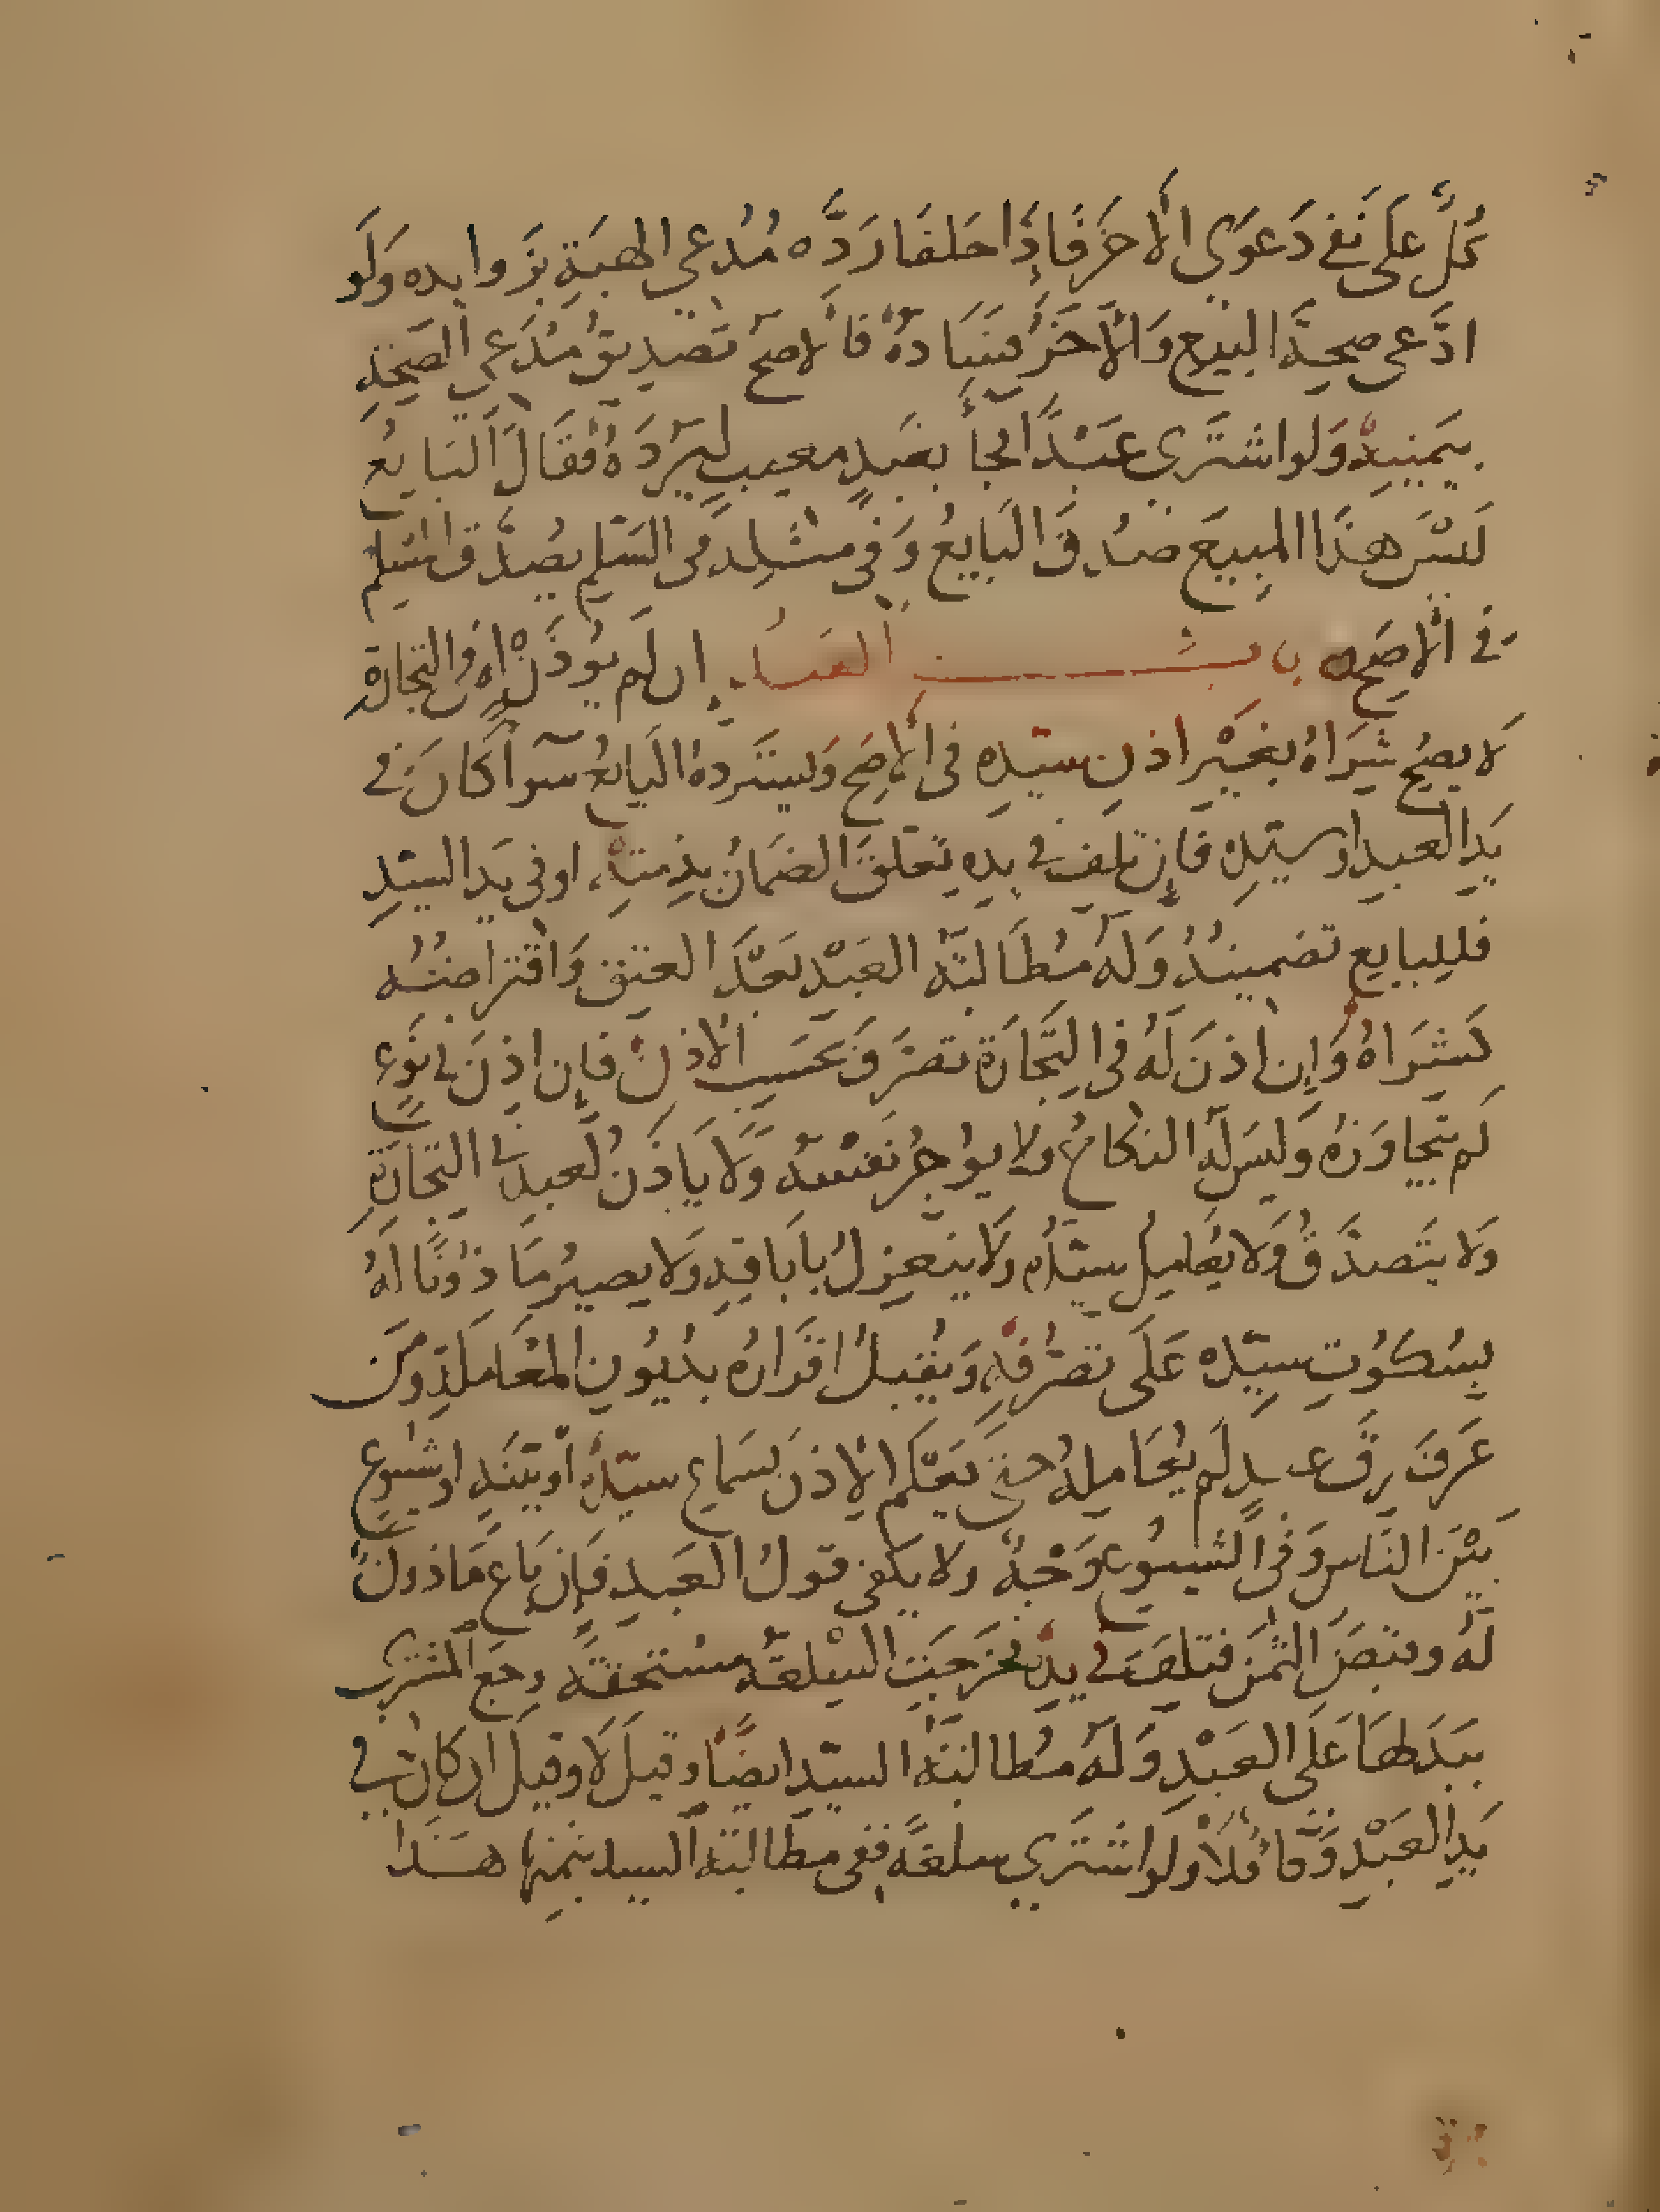 كل على نفي دعوى الآخر فإذا حلفا رده مدعي الهبة بزوايده ولو
ادعى صحة البيع والآخر فساده فالأصح تصديق مدعي الصحة
بيمينه ولو اشترى عبدا فجا بعبد معيب ليرده فقال البايع
ليس هذا المبيع صدق البايع وفي مثله في السلم يصدق المسلم
في الأصح باب العبد إن لم يوذن له في التجارة
لا يصح شراه بغير اذن سيده في الأصح ويسترده البايع سوآ كان في
يد العبد او سيده فإن تلف في يده تعلق الضمان بذمته او في يد السيد
فللبايع تضمينه وله مطالبة العبد بعد العتق واقتراضه
كشراه وإن اذن له في التجارة تصرف بحسب الاذن فإن اذن في نوع
لم يتجاوزه وليس له النكاح ولا يواجر نفسه ولا ياذن لعبده في التجارة
ولا يتصدق ولا يعامل سيده ولا ينعزل باباقه ولا يصير ماذونا له
بسكوت سيده على تصرفه ويقبل اقراره بديون المعاملة ومن
عرف رق عبد لم يعامله حتى يعلم الإذن بسماع سيده أو بينة او شيوع
بين الناس وفي الشيوع وجه ولا يكفي قول العبد فإن باع ماذون
له وقبض الثمن فتلف في يده فخرجت السلعة مستحقة رجع المشتري
ببدلها على العبد وله مطالبة السيد ايضا وقيل لا وقيل ان كان في
يد العبد وفا فلا ولو اشترى سلعة ففي مطالبة السيد بثمنها هذا